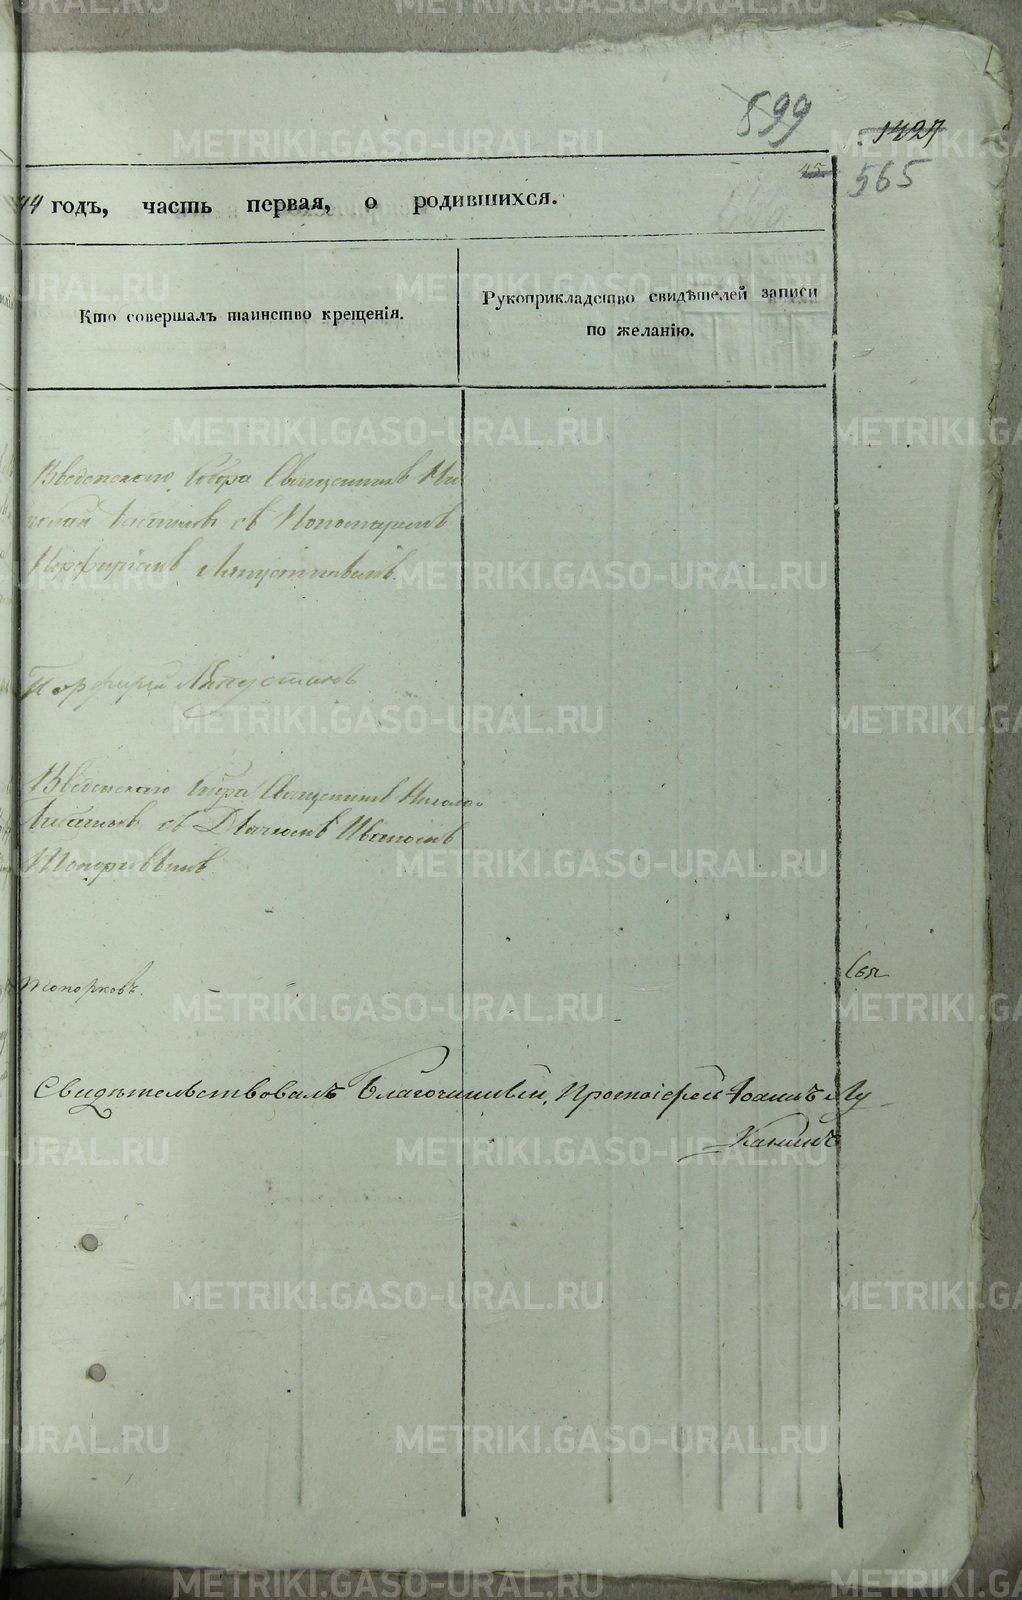 599
1427
45.
565
44 годъ, часть первая, о родившихся.
Кто совершалъ таинство крещенія.
Рукоприкладство свидѣтелей записи
по желанію.
Введенскаго Собора Священникъ Ни
колай съ Пономаремъ
Порфиріемъ Ляпустинымъ.
Порфирій Ляпустинъ
Введенскаго Собора Священникъ Никола
съ Дьячкомъ Иваномъ
Топорковымъ
Топорковъ.
Свидѣтельствовалъ Благочинный, Протоіерей Іоаннъ Лу
Канинъ
METRIKI.GASO-URAL.RU